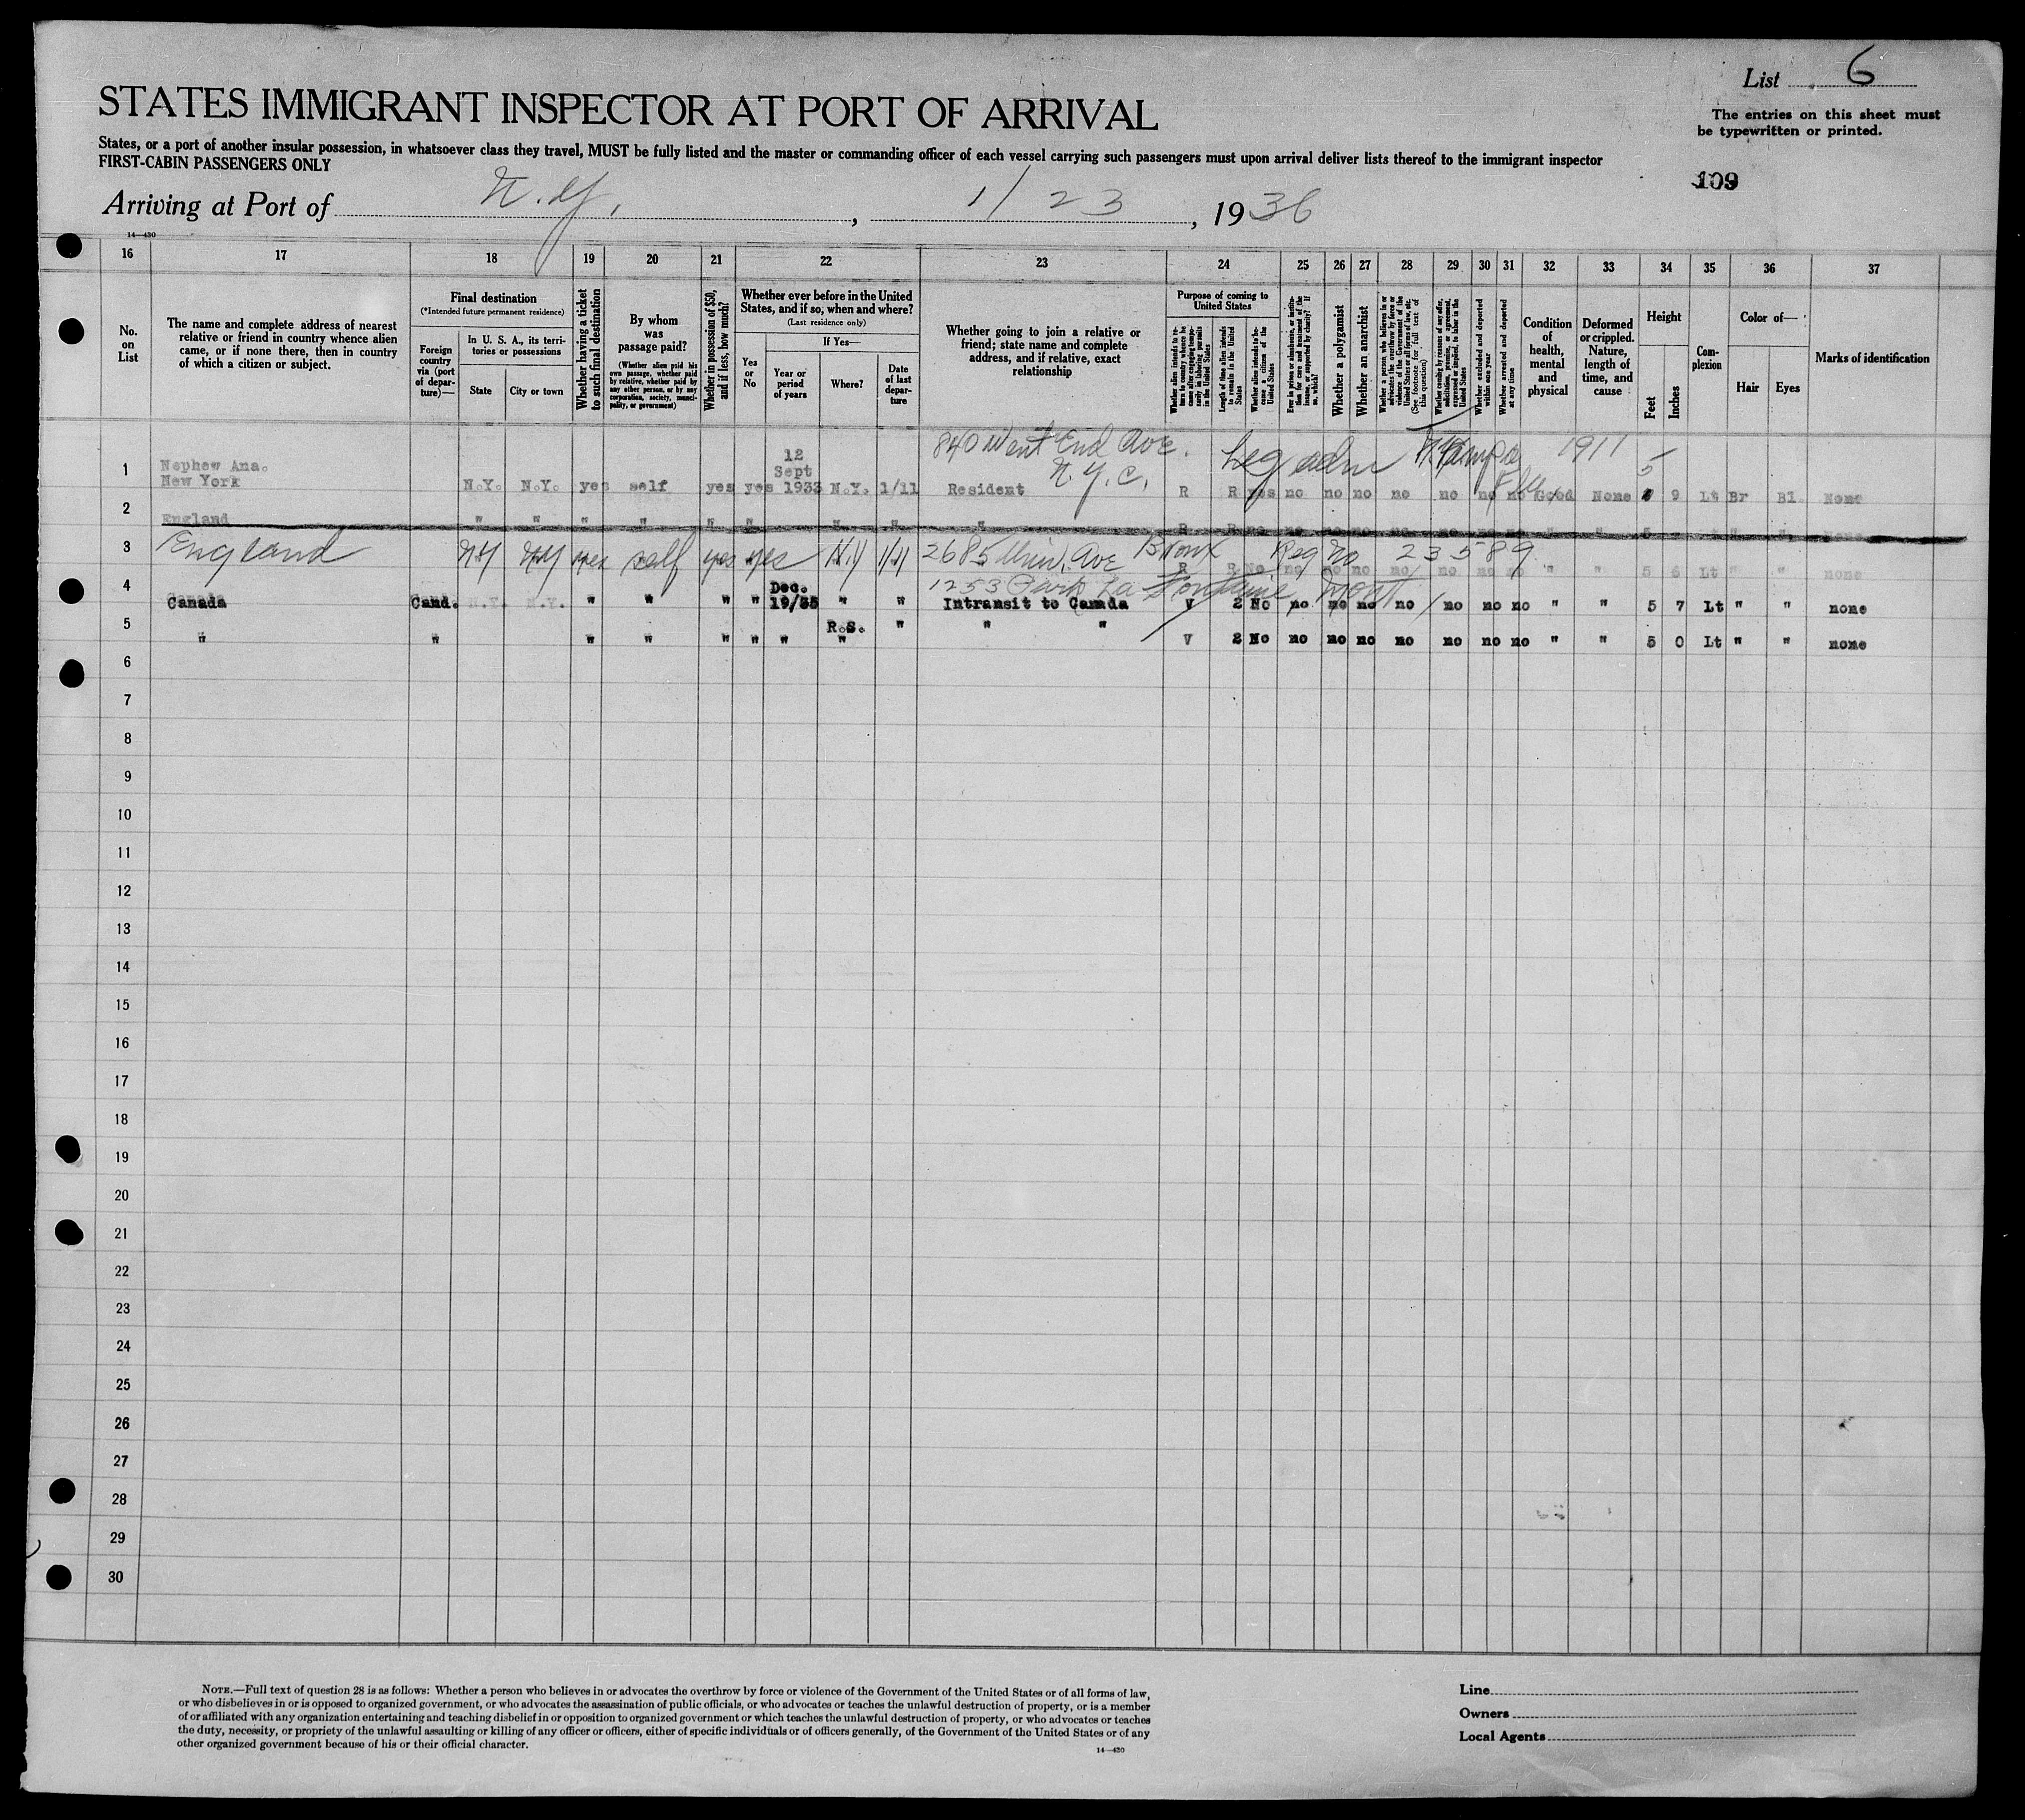 List 6
The entries on this sheet must
be typewritten or printed.
STATES IMMIGRANT INSPECTOR AT PORT OF ARRIVAL
States, or a port of another insular possession, in whatsoever class they travel, MUST be fully listed and the master or commanding officer of each vessel carrying such passengers must upon arrival deliver lists thereof to the immigrant inspector
FIRST-CABIN PASSENGERS ONLY
109
Arriving at Port of N.Y., 1/23, 1936
14—430
16 17 18 19 20 21 22 23 24 25 26 27 28 29 30 31 32 33 34 35 36 37
No. on List
The name and complete address of nearest
relative or friend in country whence alien
came, or if none there, then in country
of which a citizen or subject.
Final destination
(*Intended future permanent residence)
Foreign country via (port of departure)—
In U. S. A., its territories or possessions
State
City or town
Whether having a ticket to such final destination
By whom was passage paid?
(Whether alien paid his own passage, whether paid by relative, whether paid by any other person, or by any corporation, society, municipality, or government)
Whether in possession of $50, and if less, how much?
Whether ever before in the United States, and if so, when and where?
(Last residence only)
Yes or No
If Yes—
Year or period of years
Where?
Date of last departure
Whether going to join a relative or
friend; state name and complete
address, and if relative, exact
relationship
Purpose of coming to United States
Whether alien intends to return to country whence he came after engaging temporarily in laboring pursuits in the United States
Length of time alien intends to remain in the United States
Whether alien intends to become a citizen of the United States
Ever in prison or almshouse, or institution for care and treatment of the insane, or supported by charity? If so, which?
Whether a polygamist
Whether an anarchist
Whether a person who believes in or advocates the overthrow by force or violence of the Government of the United States or all forms of law, etc. (See footnote for full text of this question)
Whether coming by reasons of any offer, solicitation, promise, or agreement, expressed or implied, to labor in the United States
Whether excluded and deported within one year
Whether arrested and deported at any time
Condition of health, mental and physical
Deformed or crippled. Nature, length of time, and cause
Height
Feet
Inches
Complexion
Color of—
Hair
Eyes
Marks of identification
840 West End Ave.
N.Y.C.
Leg adm
1911
12
Sept
1 Nephew Ana.
New York N.Y. N.Y. yes self yes yes 1933 N.Y. 1/11 Resident R R yes no no no no no no no Good None 5 9 Lt Br Bl. None
2 England " " " " " " " " " R R no no no no no no no no " " 5 Lt " " none
3 England NY NY yes self yes yes N.Y 1/11 2685 Univ. Ave Bronx Reg No 23589
R R No no no no no no no no " " 5 6 Lt " " none
1253 Park La Fontaine, Mont
Dec.
4 Canada Cand. N.Y. N.Y. " " " " 19/35 " " Intransit to Canada V 2 No no no no no no no no " " 5 7 Lt " " none
R.S. "
5 " " " " " " " " " " V 2 No no no no no no no no " " 5 0 Lt " " none
6
7
8
9
10
11
12
13
14
15
16
17
18
19
20
21
22
23
24
25
26
27
28
29
30
NOTE.—Full text of question 28 is as follows: Whether a person who believes in or advocates the overthrow by force or violence of the Government of the United States or of all forms of law,
or who disbelieves in or is opposed to organized government, or who advocates the assassination of public officials, or who advocates or teaches the unlawful destruction of property, or is a member
of or affiliated with any organization entertaining and teaching disbelief in or opposition to organized government or which teaches the unlawful destruction of property, or who advocates or teaches
the duty, necessity, or propriety of the unlawful assaulting or killing of any officer or officers, either of specific individuals or of officers generally, of the Government of the United States or of any
other organized government because of his or their official character.
14—430
Line
Owners
Local Agents